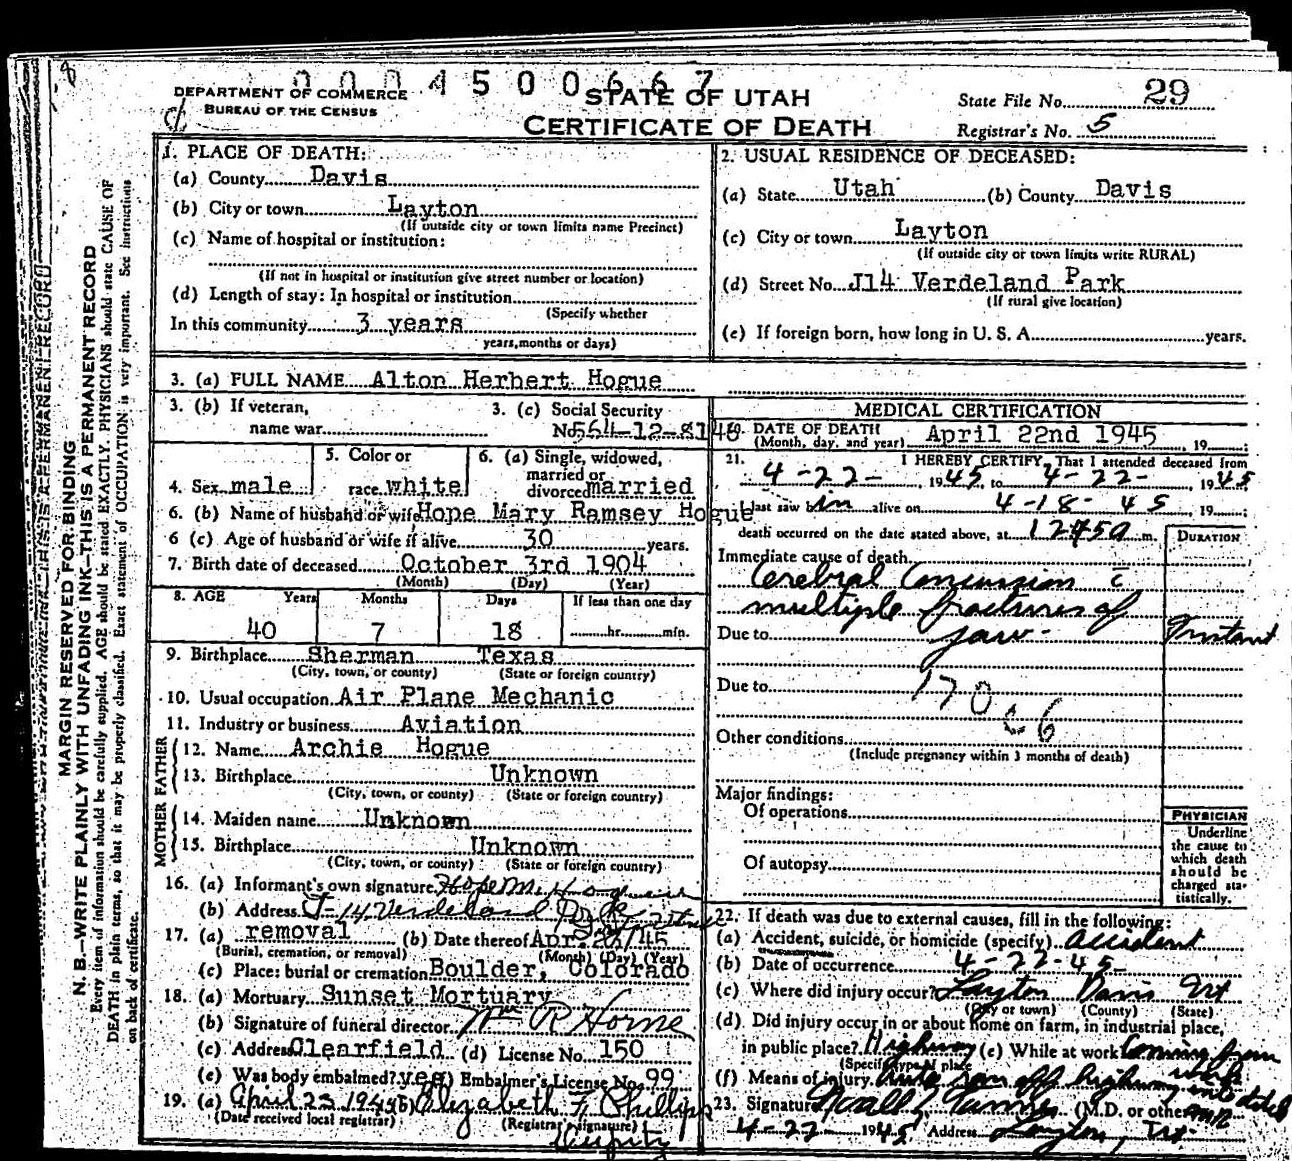 0004500667
DEPARTMENT OF COMMERCE
BUREAU OF THE CENSUS
STATE OF UTAH
CERTIFICATE OF DEATH
State File No. 29
Registrar's No. 5
MARGIN RESERVED FOR BINDING
N. B.—WRITE PLAINLY WITH UNFADING INK—THIS IS A PERMANENT RECORD
Every item of information should be carefully supplied. AGE should be stated EXACTLY. PHYSICIANS should state CAUSE OF
DEATH in plain terms, so that it may be properly classified. Exact statement of OCCUPATION is very important. See Instructions
on back of certificate.
1. PLACE OF DEATH:
(a) County Davis
(b) City or town Layton
(If outside city or town limits name Precinct)
(c) Name of hospital or institution:
(If not in hospital or institution give street number or location)
(d) Length of stay: In hospital or institution
(Specify whether
In this community 3 years
years, months or days)
2. USUAL RESIDENCE OF DECEASED:
(a) State Utah (b) County Davis
(c) City or town Layton
(If outside city or town limits write RURAL)
(d) Street No. J14 Verdeland Park
(If rural give location)
(e) If foreign born, how long in U. S. A. years.
3. (a) FULL NAME Alton Herbert Hogue
3. (b) If veteran,
name war
3. (c) Social Security
No. 564-12-8146
4. Sex male
5. Color or
race white
6. (a) Single, widowed,
married or
divorced married
6. (b) Name of husband or wife Hope Mary Ramsey Hogue
6 (c) Age of husband or wife if alive 30 years.
7. Birth date of deceased October 3rd 1904
(Month) (Day) (Year)
8. AGE Years Months Days If less than one day
40 7 18 hr. min.
9. Birthplace Sherman Texas
(City, town, or county) (State or foreign country)
10. Usual occupation Air Plane Mechanic
11. Industry or business Aviation
FATHER
12. Name Archie Hogue
13. Birthplace Unknown
(City, town, or county) (State or foreign country)
MOTHER
14. Maiden name Unknown
15. Birthplace Unknown
(City, town, or county) (State or foreign country)
16. (a) Informant's own signature Hope M. Hogue
(b) Address J-14 Verdeland Park
17. (a) removal (b) Date thereof Apr. /45
(Burial, cremation, or removal) (Month) (Day) (Year)
(c) Place: burial or cremation Boulder, Colorado
18. (a) Mortuary Sunset Mortuary
(b) Signature of funeral director Wm R Horne
(c) Address Clearfield (d) License No. 150
(e) Was body embalmed? yes (f) Embalmer's License No. 99
19. (a) April 23 1945 (b) Elizabeth F. Phillips
(Date received local registrar) (Registrar's signature)
Deputy
MEDICAL CERTIFICATION
20. DATE OF DEATH
(Month, day, and year) April 22nd 1945, 19
21. I HEREBY CERTIFY, That I attended deceased from
4-22-, 1945, to 4-22-, 1945
I last saw him alive on 4-18-45, 19
death occurred on the date stated above, at 1245a m.
DURATION
Immediate cause of death
Cerebral Concussion c̄
multiple fractures of
Due to jaw- Instant
Due to 170 c 6
Other conditions
(Include pregnancy within 3 months of death)
Major findings:
Of operations
Of autopsy
PHYSICIAN
Underline
the cause to
which death
should be
charged sta-
tistically.
22. If death was due to external causes, fill in the following:
(a) Accident, suicide, or homicide (specify) accident
(b) Date of occurrence 4-22-45
(c) Where did injury occur? Layton Davis Ut
(City or town) (County) (State)
(d) Did injury occur in or about home on farm, in industrial place,
in public place? Highway (e) While at work Coming from
(Specify type of place work
(f) Means of injury Auto ran off highway into ditch
23. Signature (M.D. or other)
4-22- 1945 Address Layton, Ut